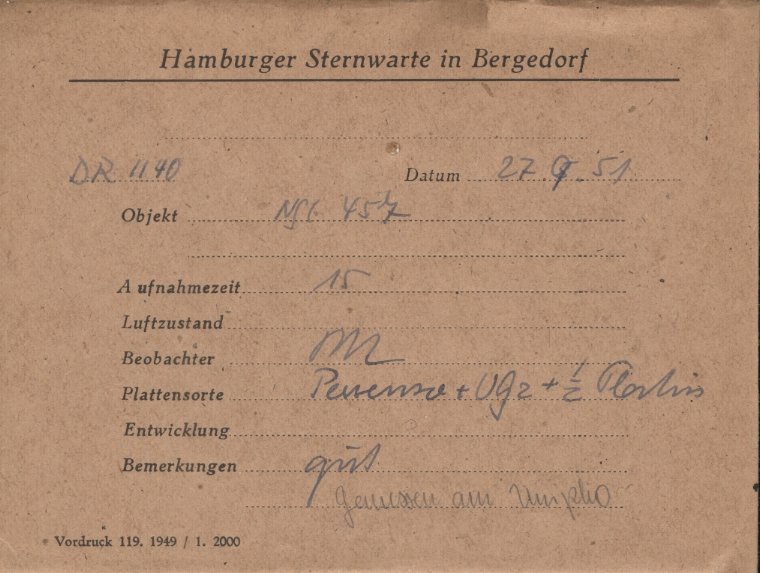 Hamburger Sternwarte in Bergedorf
DR 1140 Datum 27. 9. 51
Objekt NGC 457
Aufnahmezeit 15
Luftzustand
Beobachter
Plattensorte + UG2 + 1/2
Entwicklung
Bemerkungen gut
Gemessen am
Vordruck 119. 1949 / 1. 2000